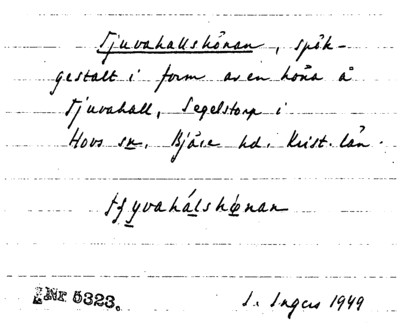 Tjuvahallshönan, spök-
gestalt i form av en höna å
Tjuvahall, Segelstorp i
Hovs sn. Bjäre hd. Krist. län.
tʃyvahálshønan
Nr 5323.
I. Ingers 1949